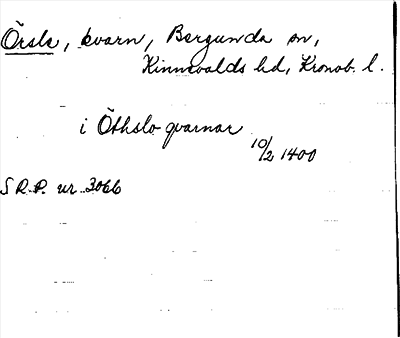 Örsle, kvarn, Bergunda sn,
Kinnevalds hd, Kronob. l.
i Öthslo qvarnar
10/2 1400
S.R.P. nr 3066